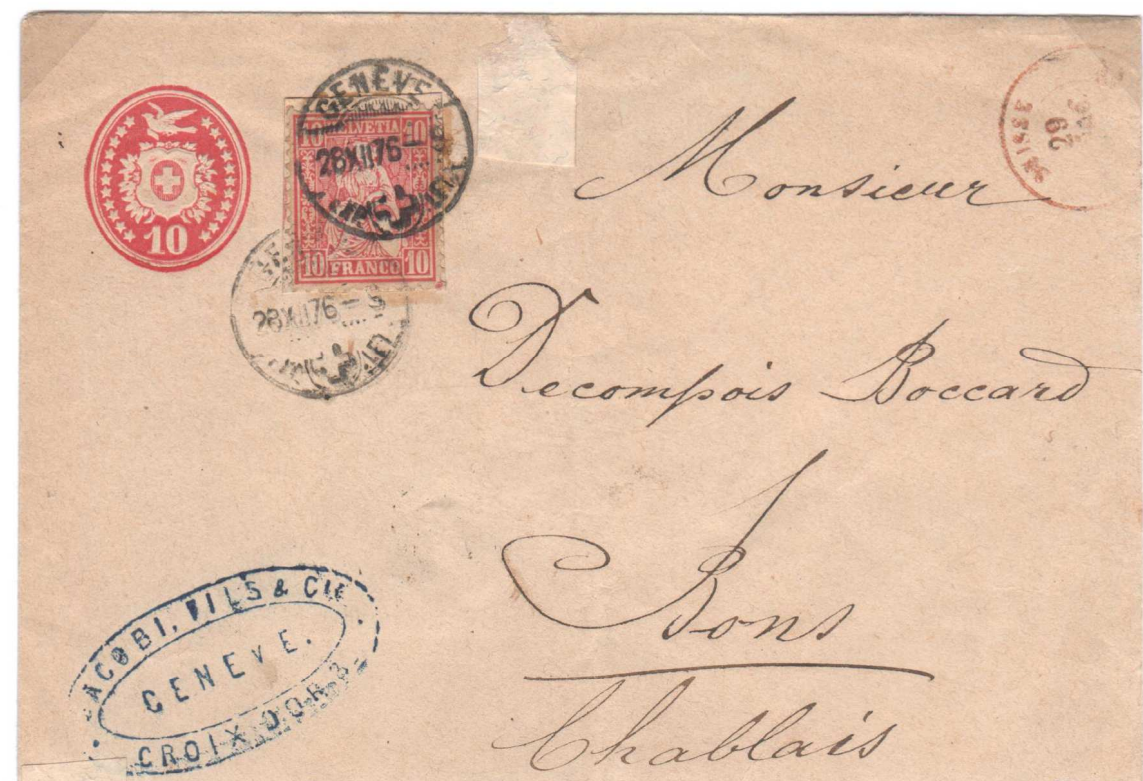 10
GENÈVE
28XII76-
10 HELVETIA 10
10 FRANCO 10
28XII76-9
29
Monsieur
Decompois Boccard
Bons
Chablais
JACOBI, FILS & CIE
GENEVE.
CROIX D'OR. 3